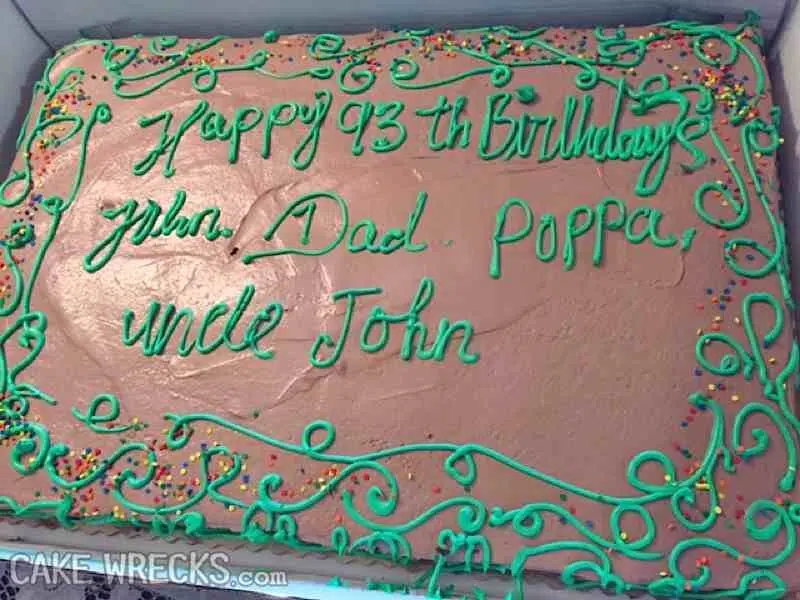 Happy 93th Birthday
John. Dad. Poppa,
uncle John
CAKE WRECKS.com